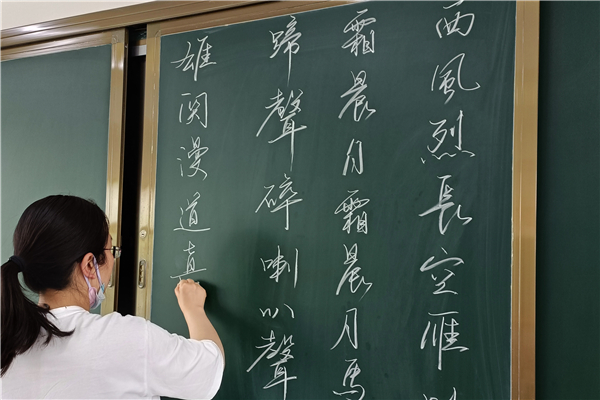 西風烈長空雁
霜晨月霜晨月馬
蹄聲碎喇叭聲
雄関漫道真